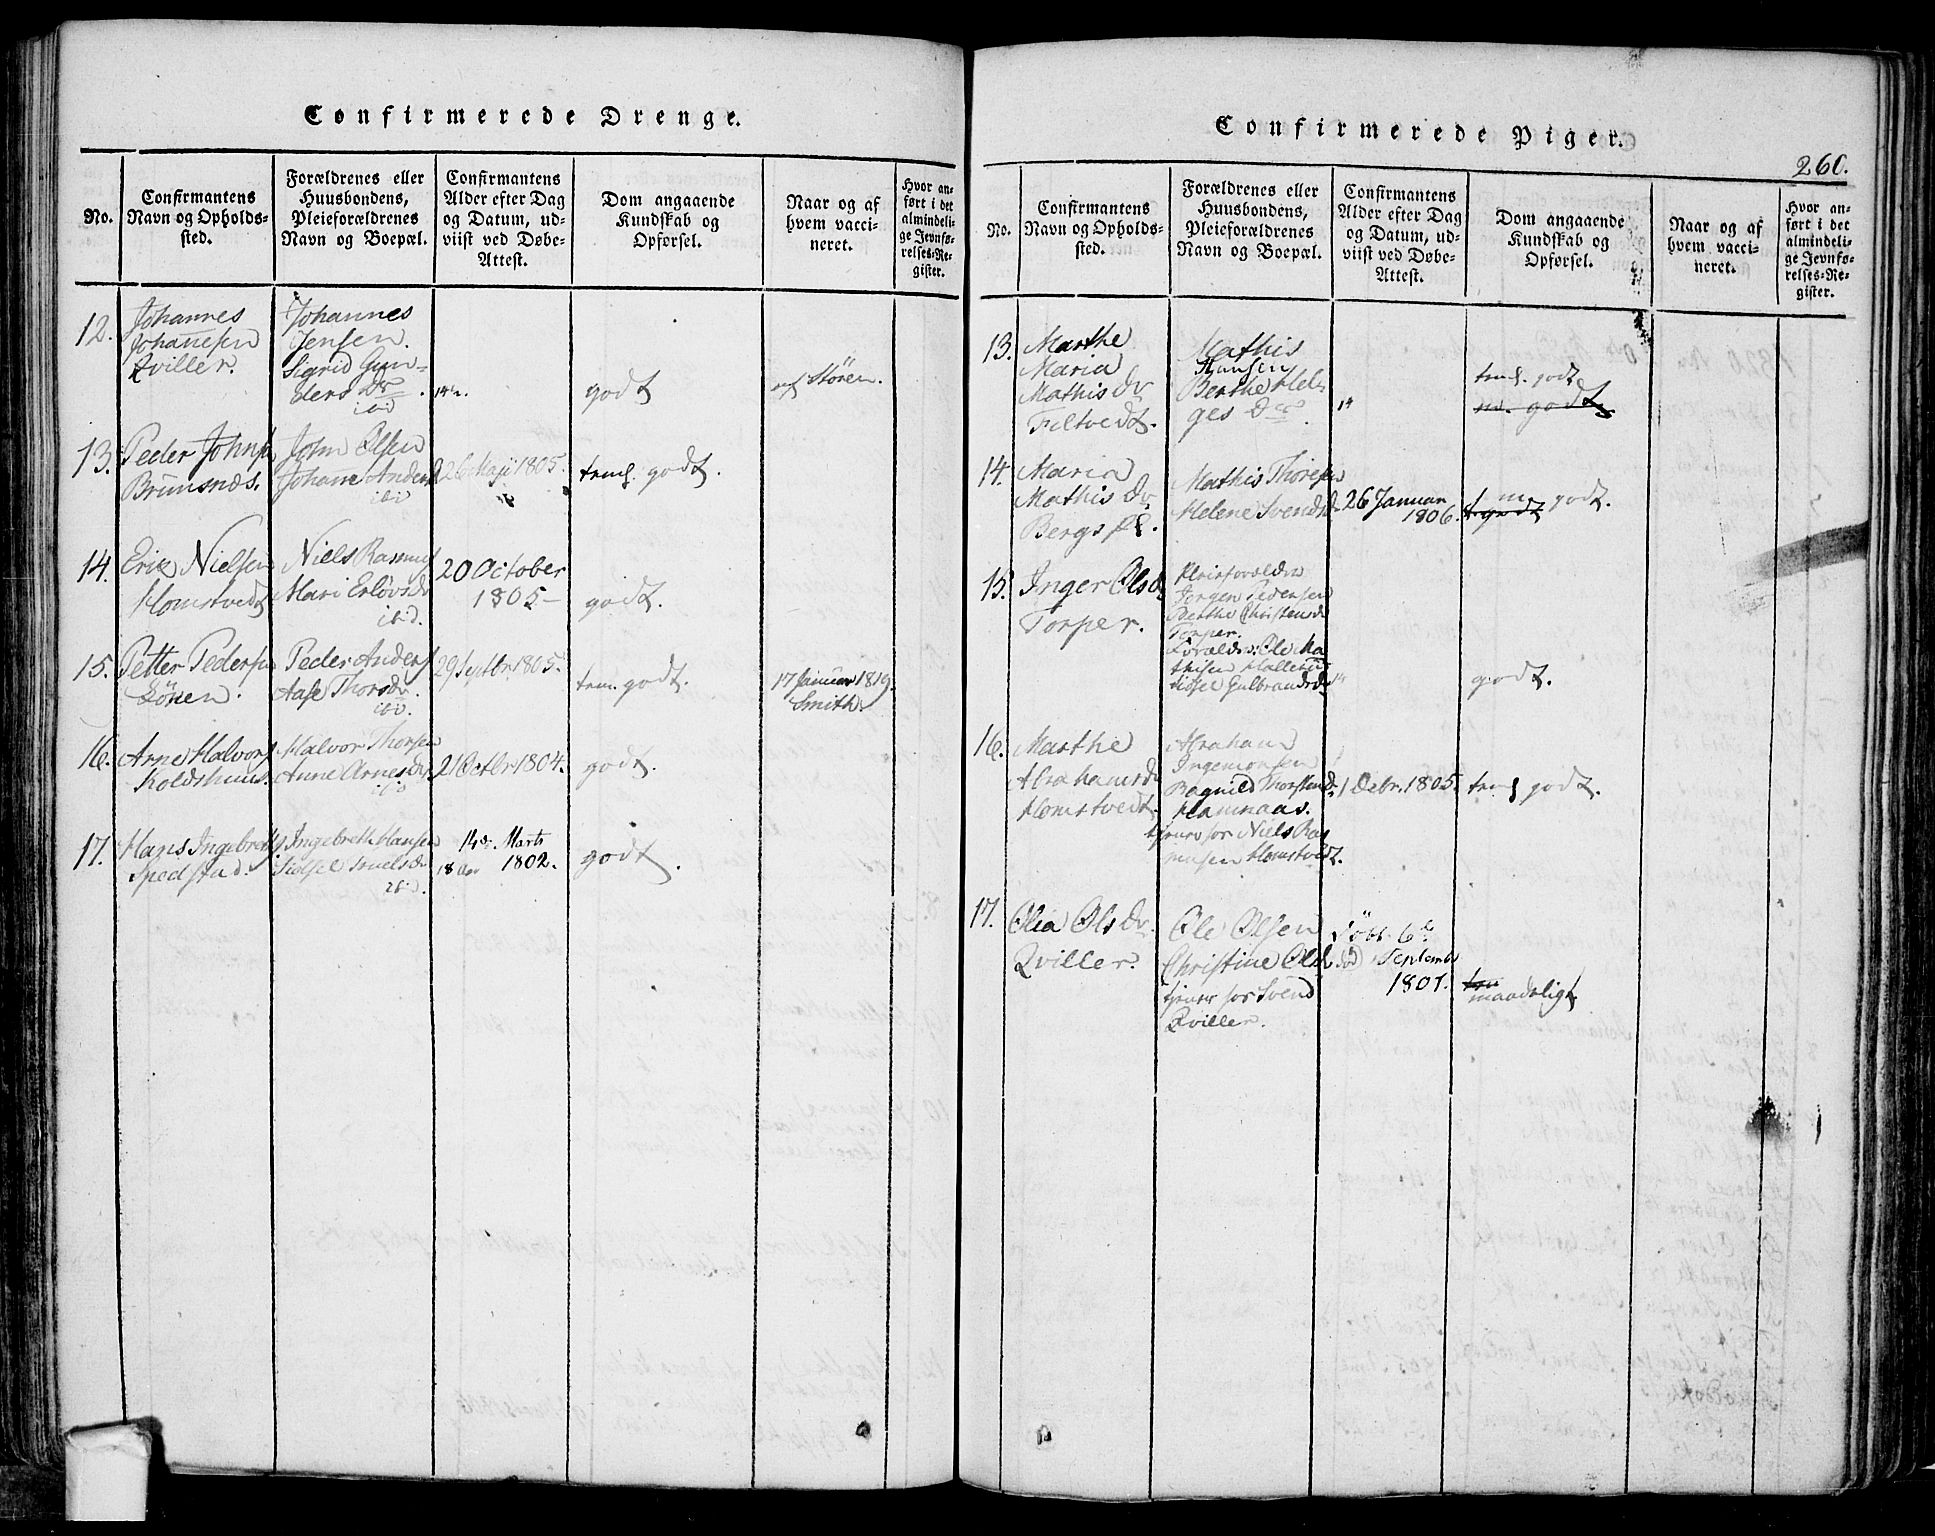 Confirmerede Drenge.
No.
Confirmantens
Navn og Opholds-
sted.
Forældrenes eller
Huusbondens,
Pleieforældrenes
Navn og Boepæl.
Confirmantens
Alder efter Dag
og Datum, ud-
viist ved Døbe-
Attest.
Dom angaaende
Kundskab og
Opførsel.
Naar og af
hvem vacci-
neret.
Hvor an-
ført i det
almindeli-
ge Jevnfø-
relses-Re-
gister.
12.
Johannes
Johannesen
Qviller.
Johannes
Jensen.
Sigrid Gun-
ders Dr.
ibid
14
godt
af Støren.
13.
Peder Johns
Brunsnæs.
John Olsen
Johanne Anders
ibi
26 Maji 1805.
teml. godt.
14.
Eric Nielsen
Homstvedt
Niels Rasmus
Mari Erlovsdr
ibid.
20 October
1805
godt.
15.
Petter Peders
Lönen.
Peder Anders
Aase Thorsdr.
ibid.
29 Septbr. 1805
tem. godt.
17 Januar 1819.
Smith.
16.
Arne Halvors
Koldshuus.
Halvor Thorsen
Anne Arnesdr
21 Octbr. 1804.
godt.
17.
Hans Ingebreths
Spedstad.
Ingebreth Hansen
Siølsel Truelsdr
ibid.
14de Marts
18 Aar 1802.
godt.
Confirmerede Piger.
260.
No.
Confirmantens
Navn og Opholds-
sted.
Forældrenes eller
Huusbondens,
Pleieforældrenes
Navn og Boepæl.
Confirmantens
Alder efter Dag
og Datum, ud-
viist ved Døbe-
Attest.
Dom angaaende
Kundskab og
Opførsel.
Naar og af
hvem vacci-
neret.
Hvor an-
ført i det
almindeli-
ge Jevnfø-
relses-Re-
gister.
13.
Marthe
Maria
Mathisdr
Feltvedt.
Mathis
Hansen
Berthe Hel-
ges
14
teml. godt
godt
14.
Maria
Mathisdr
Bergs
Mathis Thoresen
Helene Svendsdr
26 Januar
1806.
godt.
15.
Inger Olsdr
Torper.
Pleieforældre
Jørgen Pedersen
Berthe Christensdr
Torper.
Forældre: Ole Ma
thisen
Siølsel Gulbrandsdr
14
godt.
16.
Marthe
Abrahamsdr
Homstvedt.
Abraham
Ingemonsen
Ragnild Thorstensdr
Hamnaas.
tjener for Niels Ras
musen Homstvedt.
1 Debr. 1805.
teml godt.
17.
Olea Olsdr.
Qviller.
Ole Olsen
Christine Olsdr
tjener for Svend
Qviller.
Döbt 6te
Septembr
1801.
maadeligt